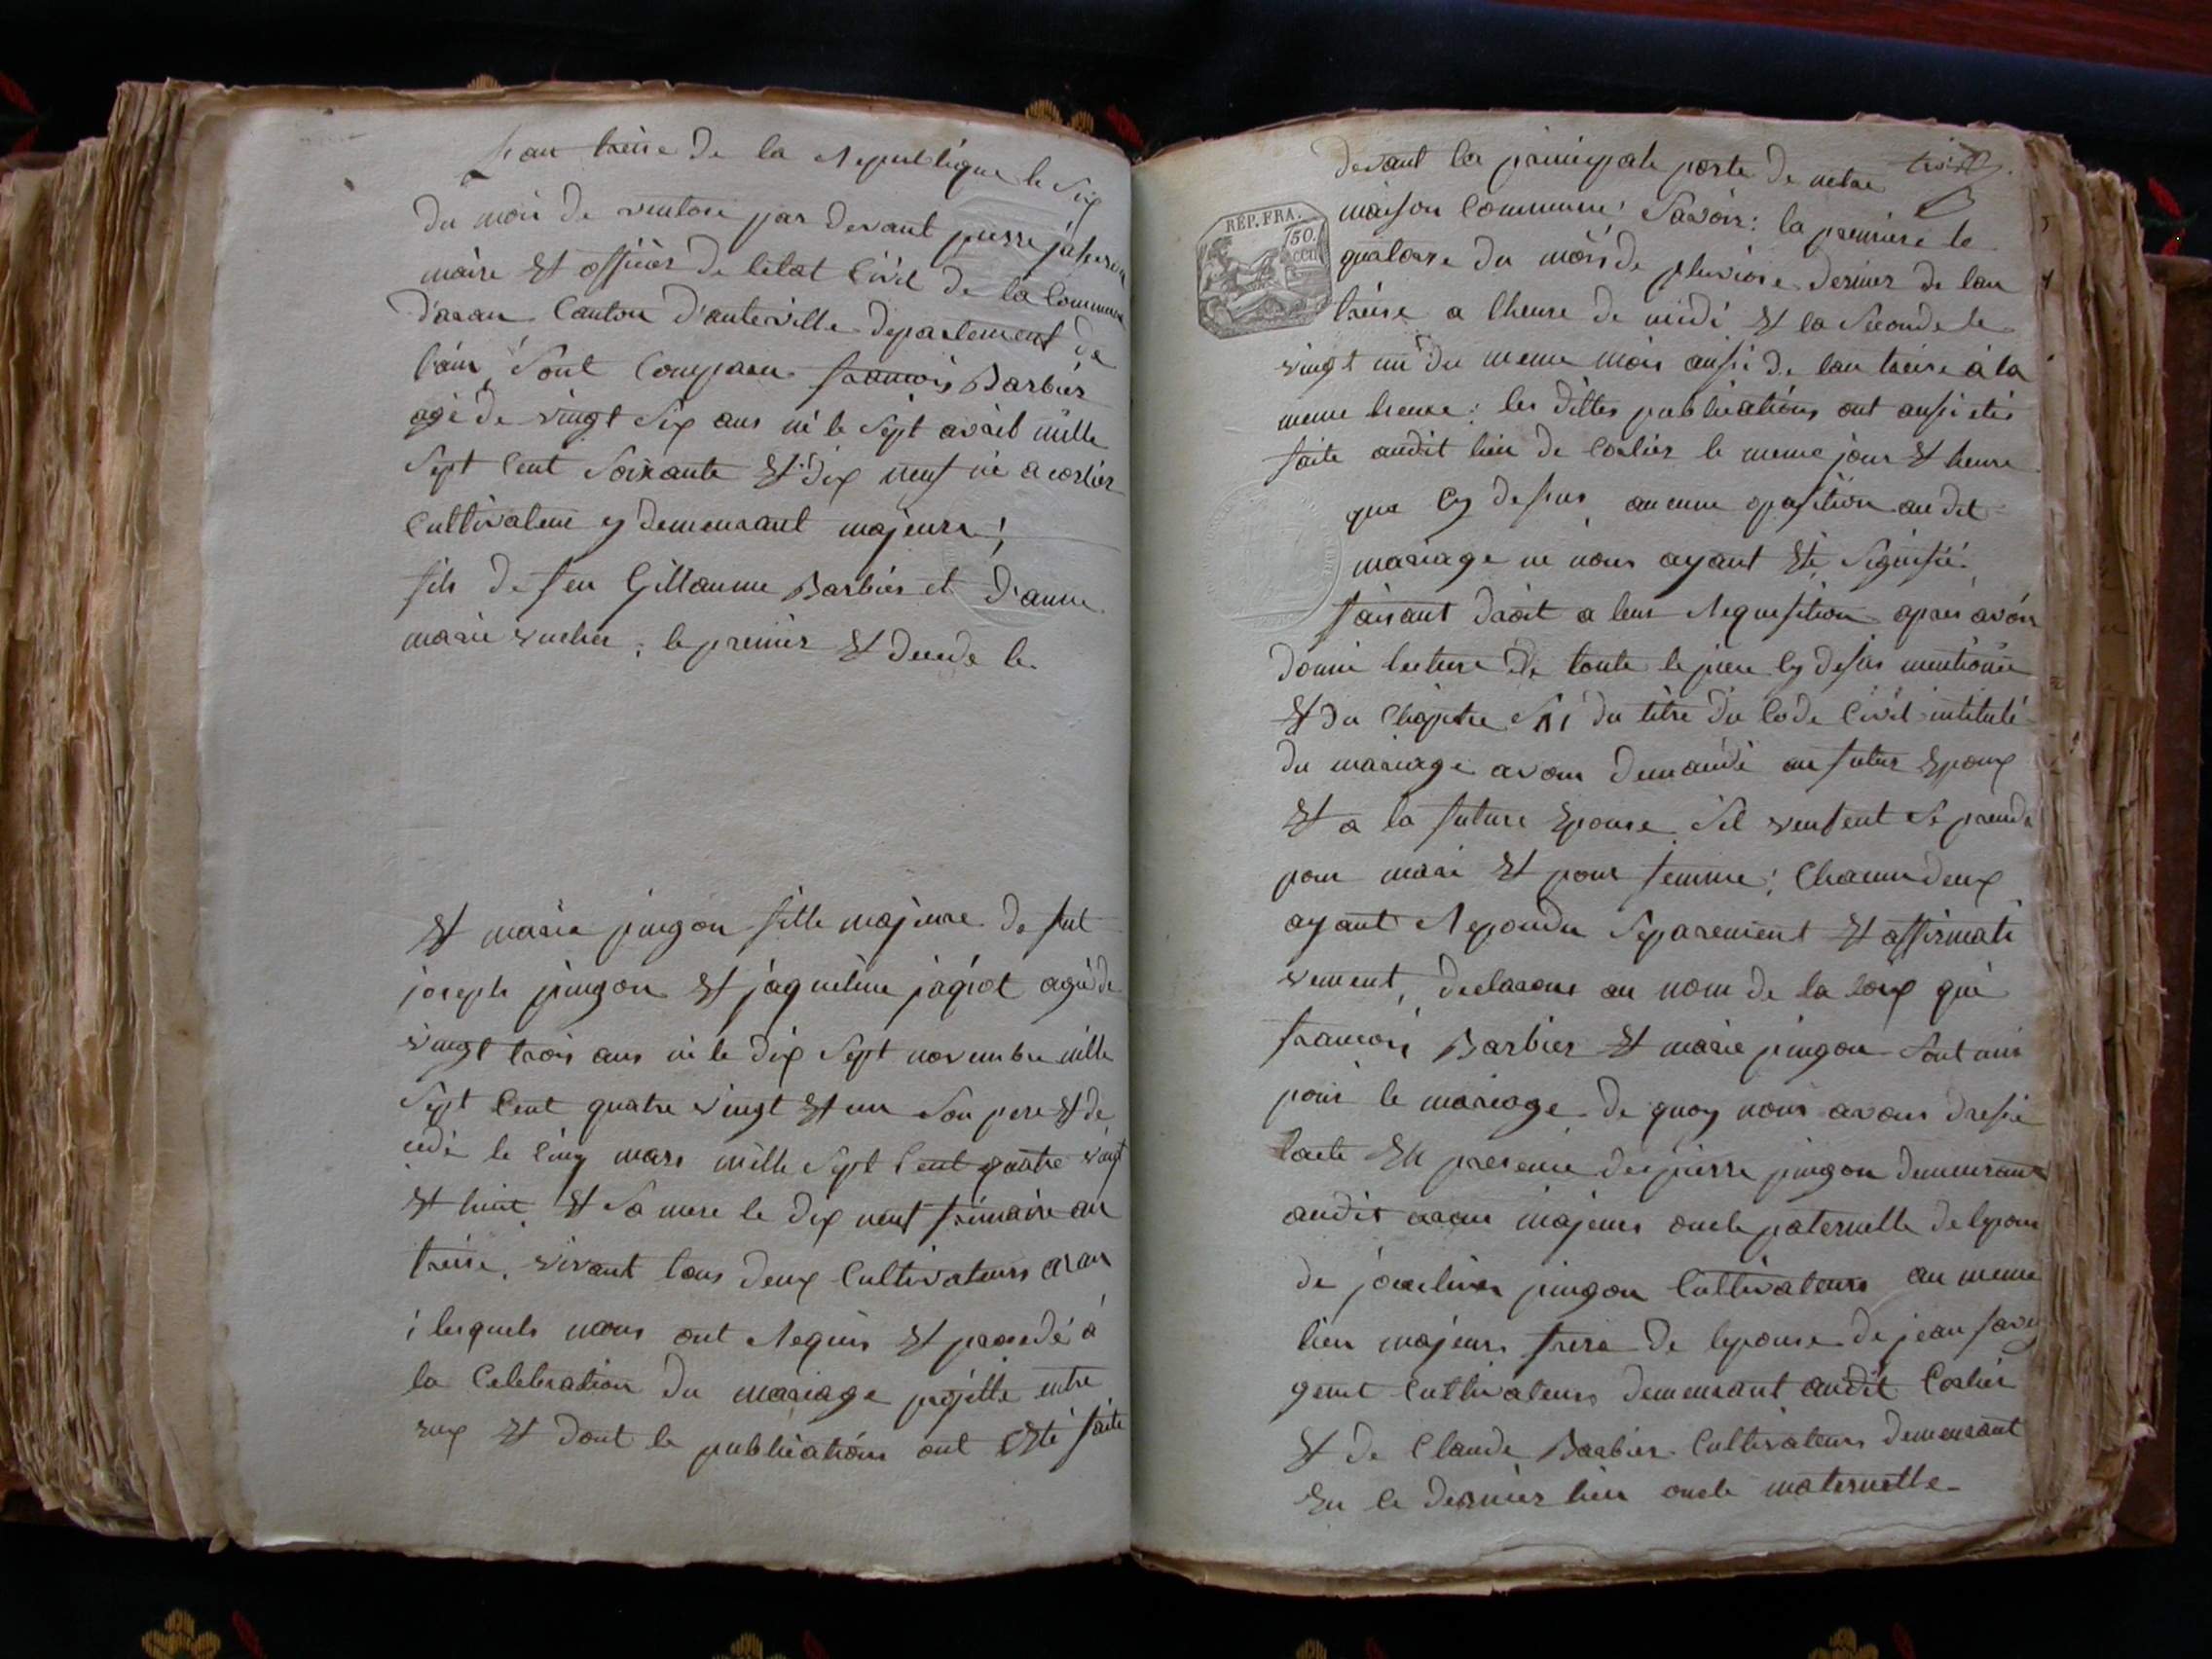 Lan treise de la Republique le six
du mois de ventose par devant pierre
maire Et officier de letat Civil de la Commune
d'aran Canton d'anteville departement de
lain, Sont Comparu francois Barbier
agé de vingt Six ans né le Sept avril mille
Sept Cent Soixante Et dix neuf né a corlier
Cultivateur y demeurant majeure;
fils de feu Gillaume Barbier et d'anne
marie vucher, le premier Et decede le
Et marie pingon fille majeure de fut
joseph pingon Et jaqueline jagiot agé de
vingt trois ans né le dix Sept novembre mille
Sept Cent quatre vingt Et un Son pere Et de
cedé le Cinq mars mille Sept Cent quatre vingt
Et huit Et Sa mere le dix neuf frimaire an
treise, vivant tous deux Cultivateurs aran
; lesquels nous ont Requis Et procedé a
la Celebration du mariage projetté entre
eux Et dont le publications ont Eté faite
devant la principale porte de notre
maison Commune; Savoir: la premiere le
REP. FRA.
50.
cent
quatorze du mois de pluviose dernier de lan
treise a lheure de midi Et la Seconde le
vingt un du meme mois aussi de lan treise à la
meme heure: les dittes publications ont aussi étés
faite audit lieu de Corlier le meme jour Et heure
que Cy dessus, aucune oposition audit
mariage ne nous ayant Eté Signifié.
faisant droit a leur Requisition apres avoir
donné lecture de toute le piece Cy desus mentionée
Et du Chapitre du titre du Code Civil intitulé
du mariage avons demandé au futur Epoux
Et a la future Epouse Sil veulent Se prendre
pour mari Et pour femme; Chacun deux
ayant Repondu Separement Et affirmati
vement, declarons au nom de la loix que
francois Barbier Et marie pingon Sont unis
pour le mariage de quoy nous avons dressé
lacte En presence de pierre pingon demeurant
audit aran majeur oncle paternelle de lepouse
de pingon Cultivateurs au meme
lieu majeur frere de lepouse de jean
Cultivateurs demeurant audit Corlier
Et de Claude Barbier Cultivateurs demeurant
En le dernier lieu oncle maternelle